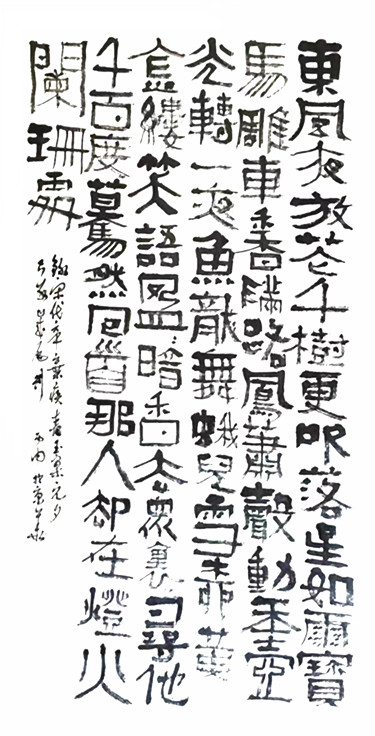 東風夜放花千樹更吹落星如雨寶
馬雕車香滿路鳳簫聲動玉壺
光轉一夜魚龍舞蛾兒雪柳黃
金縷笑語盈盈暗香去眾裏尋他
千百度驀然回首那人却在燈火
闌珊處
錄宋代辛棄疾青玉案元夕